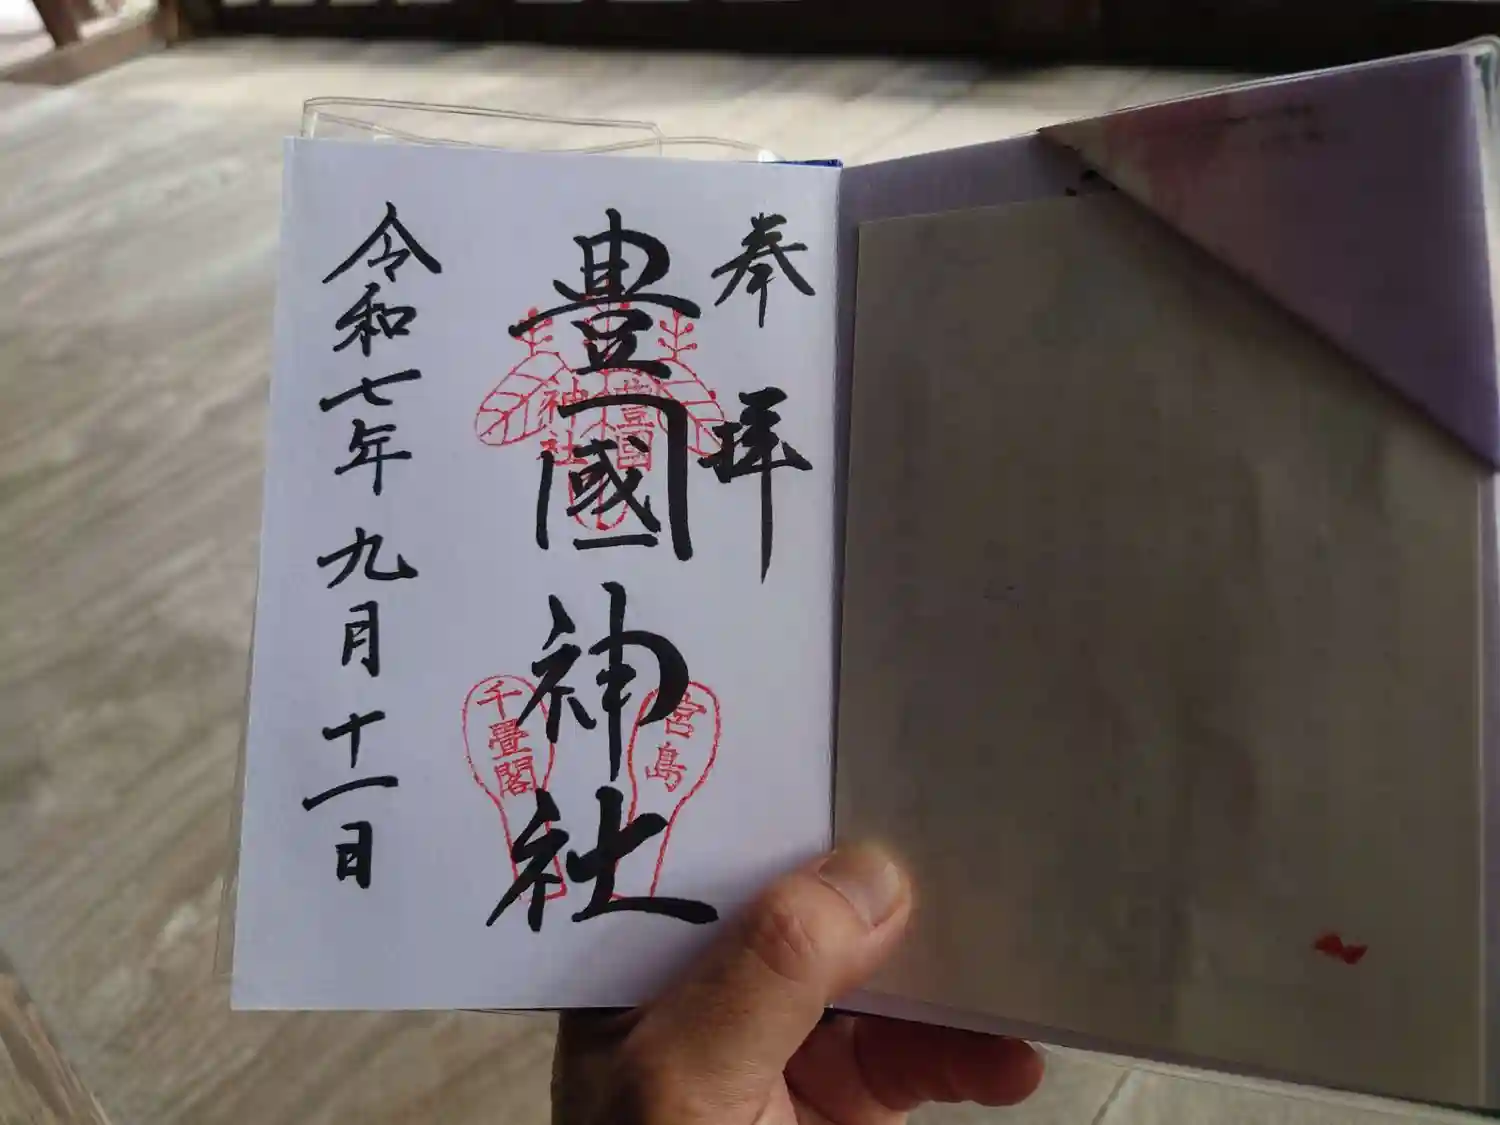 奉拝
豊國神社
豊国
神社
宮島
千畳閣
令和七年九月十一日